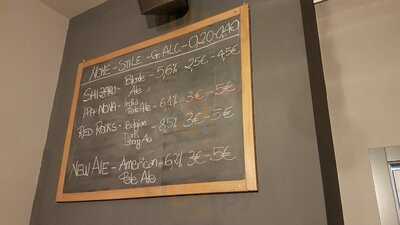 NOME - STILE - G.ALC - 0,20-0,40
SHIZARU - Blonde Ale - 5,6% 2,5€ - 4,5€
IPA NOVA - India Pale Ale - 6,1% 3€ - 5€
RED ROCKS - Belgian Dark Strong Ale - 8,5% 3€ - 5€
NEW ALE - American Pale Ale - 6,2% 3€ - 5€